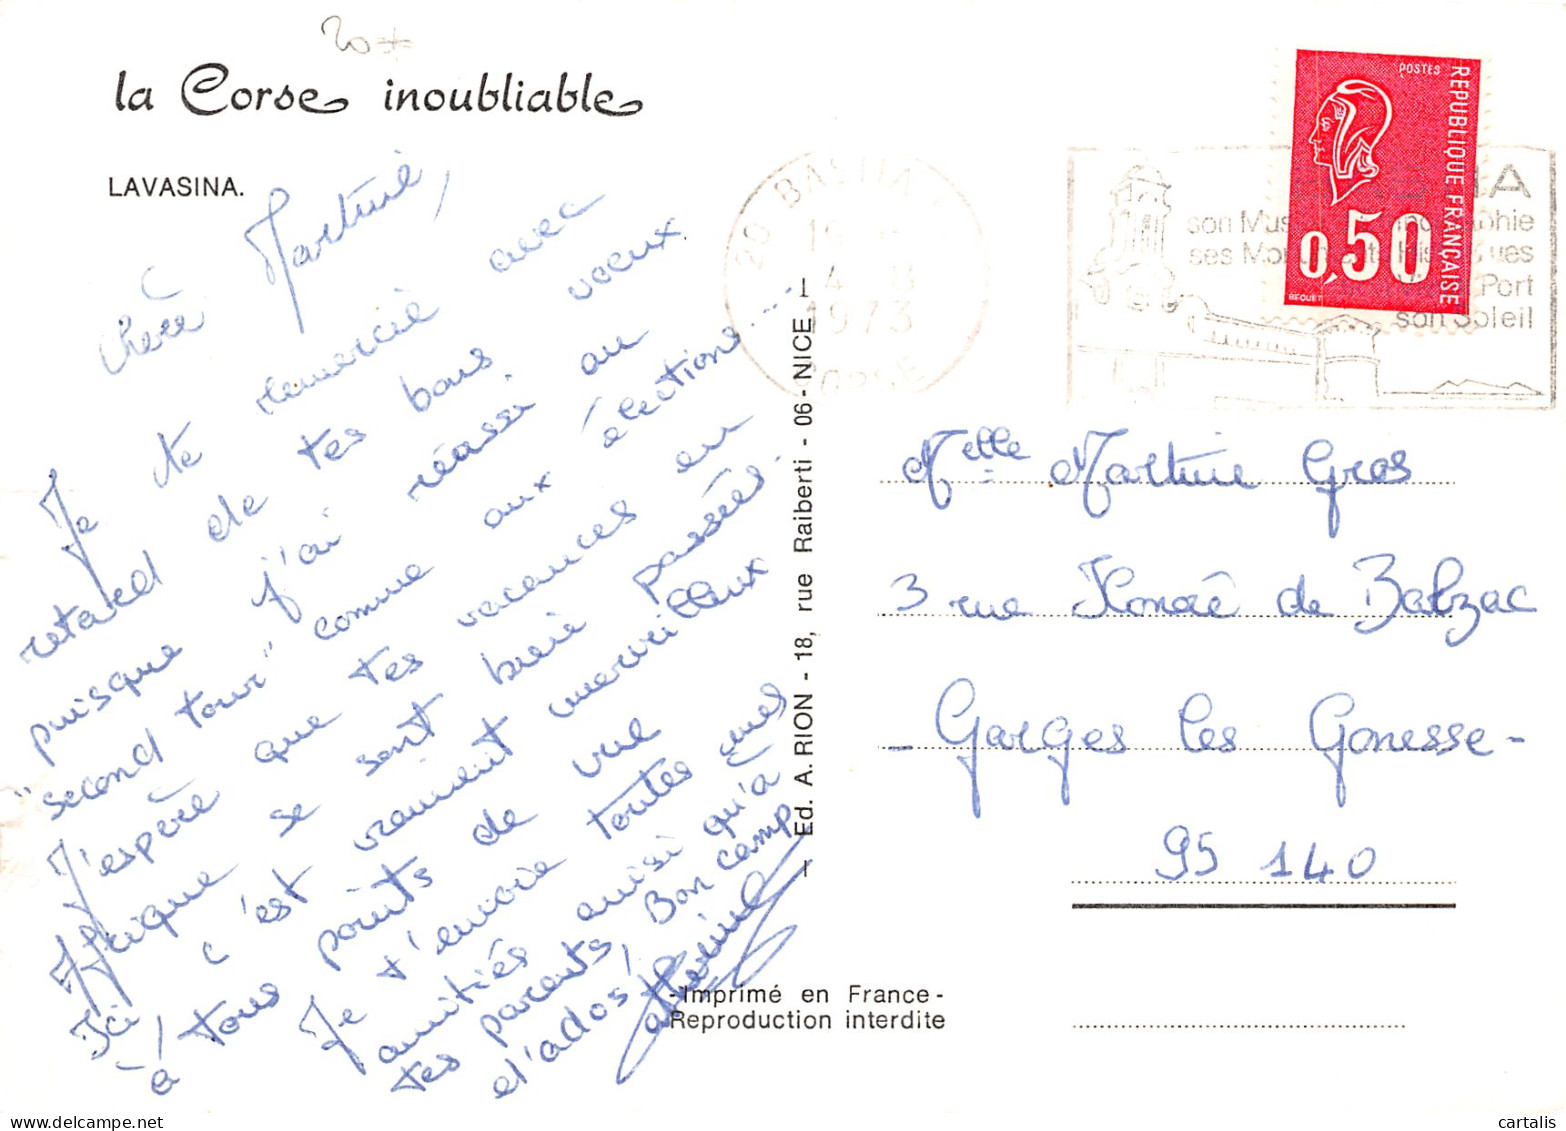 20
la Corse inoubliable
LAVASINA.
Chère Martine,
Je te remercie avec
retard de tes bons voeux
puisque j'ai réussi au
"second tour" comme aux élections...
J'espère que tes vacances en
Afrique se sont bien passées.
Ici, c'est vraiment merveilleux
à tous points de vue
Je t'envoie toutes mes
amitiés ainsi qu'à
tes parents. Bon camp
d'ados!
Ed. A. RION - 18, rue Raiberti - 06 - NICE
-Imprimé en France-
Reproduction interdite
20 BASTIA
4 - 8
1973
CORSE
son Mus
ses Mon
Port
son Soleil
POSTES
REPUBLIQUE FRANÇAISE
0,50
BEQUET
Melle Martine Gros
3 rue Honoré de Balzac
- Garges les Gonesse -
95 140
cartalis
www.delcampe.net